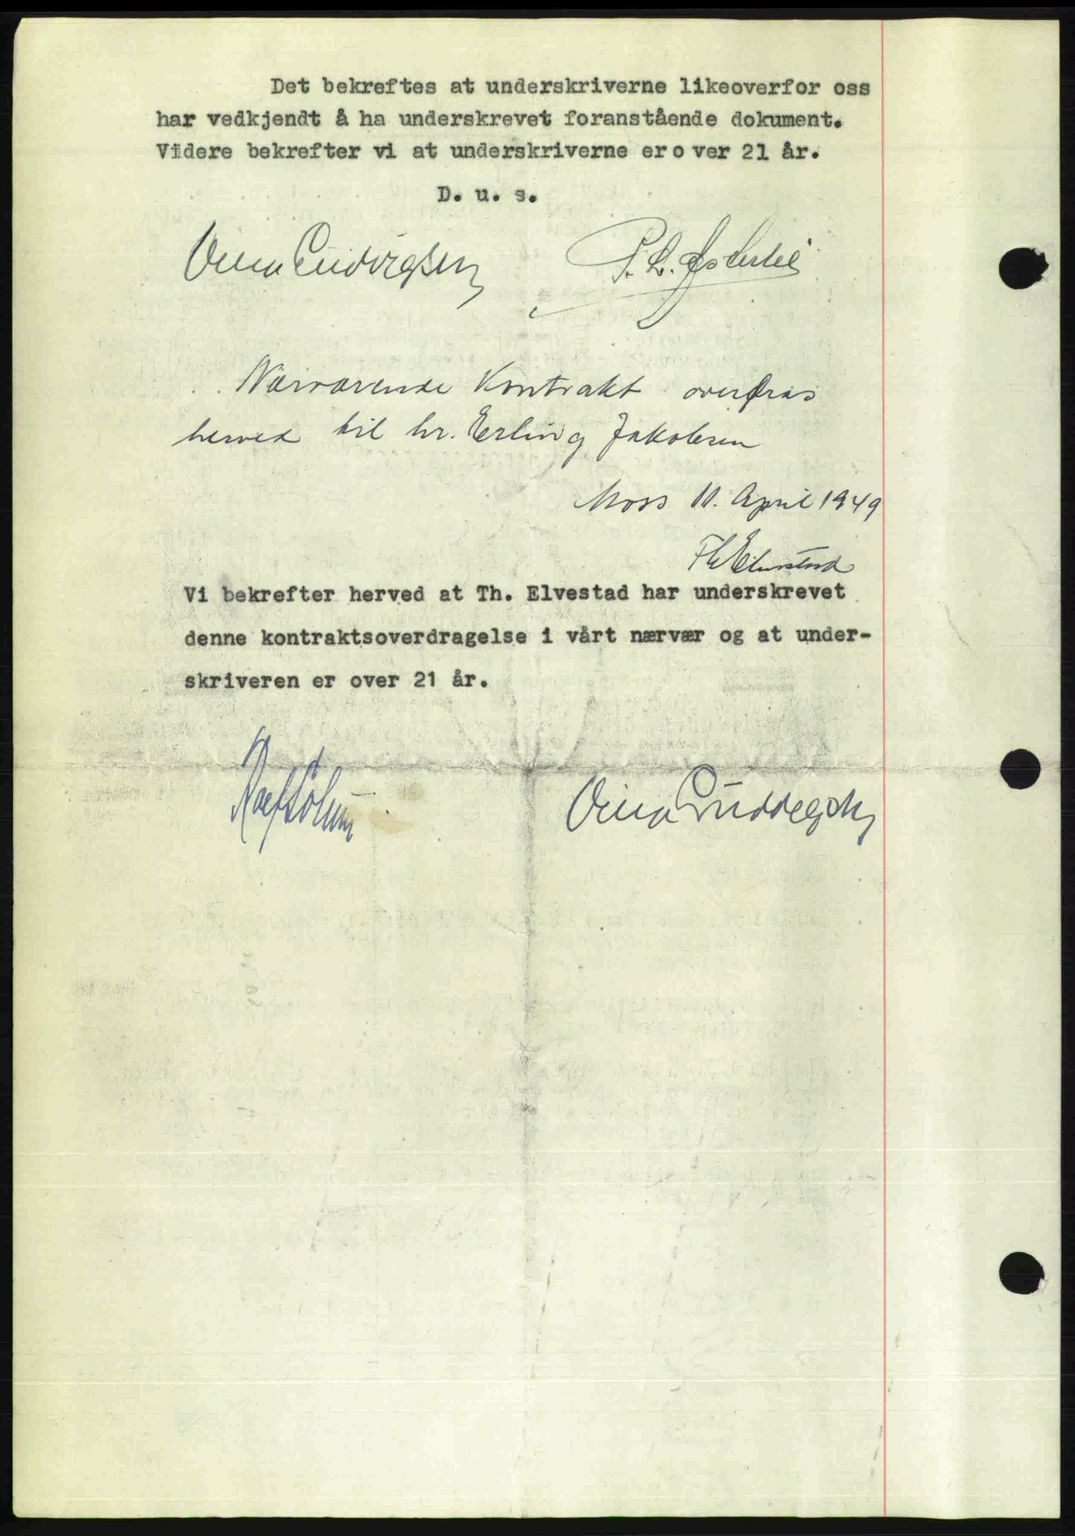 Det bekreftes at underskriverne likeoverfor oss
har vedkjendt å ha underskrevet foranstående dokument.
Videre bekrefter vi at underskriverne er o ver 21 år.
D. u. s.
P. L.
Nærværende Kontrakt overdras
herved til hr. Erling Jakobsen
Moss 11. April 1949
Th Elvestad
Vi bekrefter herved at Th. Elvestad har underskrevet
denne kontraktsoverdragelse i vårt nærvær og at under-
skriveren er over 21 år.